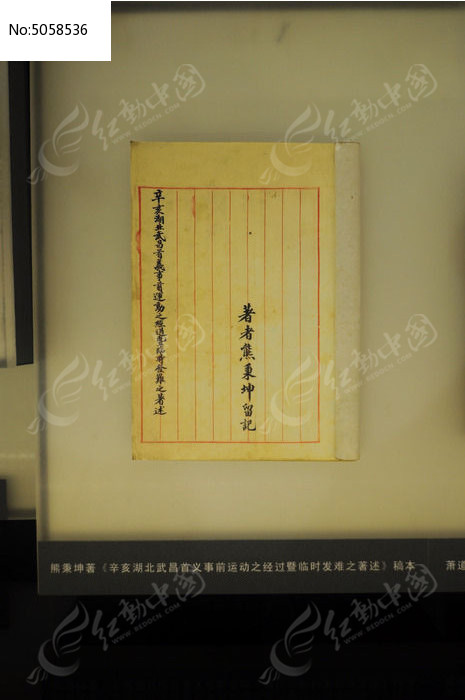 No:5058536
红動中国
WWW.REDOCN.COM
红動中国
WWW.REDOCN.COM
著者熊秉坤留記
辛亥湖北武昌首義事前運動之經過暨臨時發難之著述
红動中国
WWW.REDOCN.COM
红動中国
WWW.REDOCN.COM
熊秉坤著《辛亥湖北武昌首义事前运动之经过暨临时发难之著述》稿本
萧道
红動中国
WWW.REDOCN.COM
红動中国
WWW.REDOCN.COM